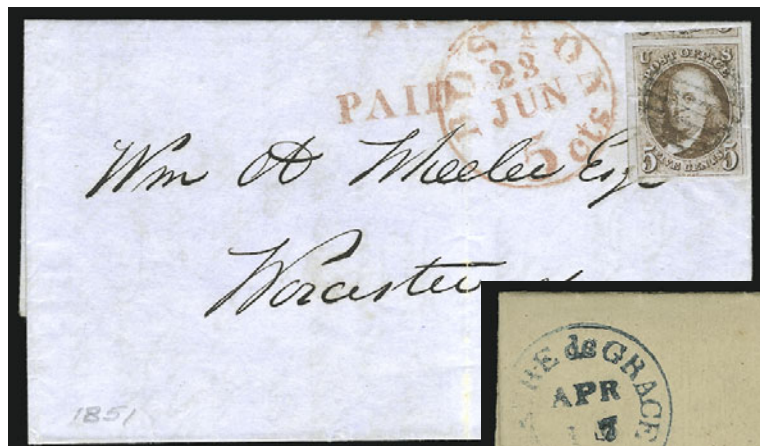 PAID
BOSTON
23
JUN
5 cts
U S
POST OFFICE
FIVE CENTS
5 5
Wm A Wheeler Esq
Worcester
1851
RE de GRACE
APR